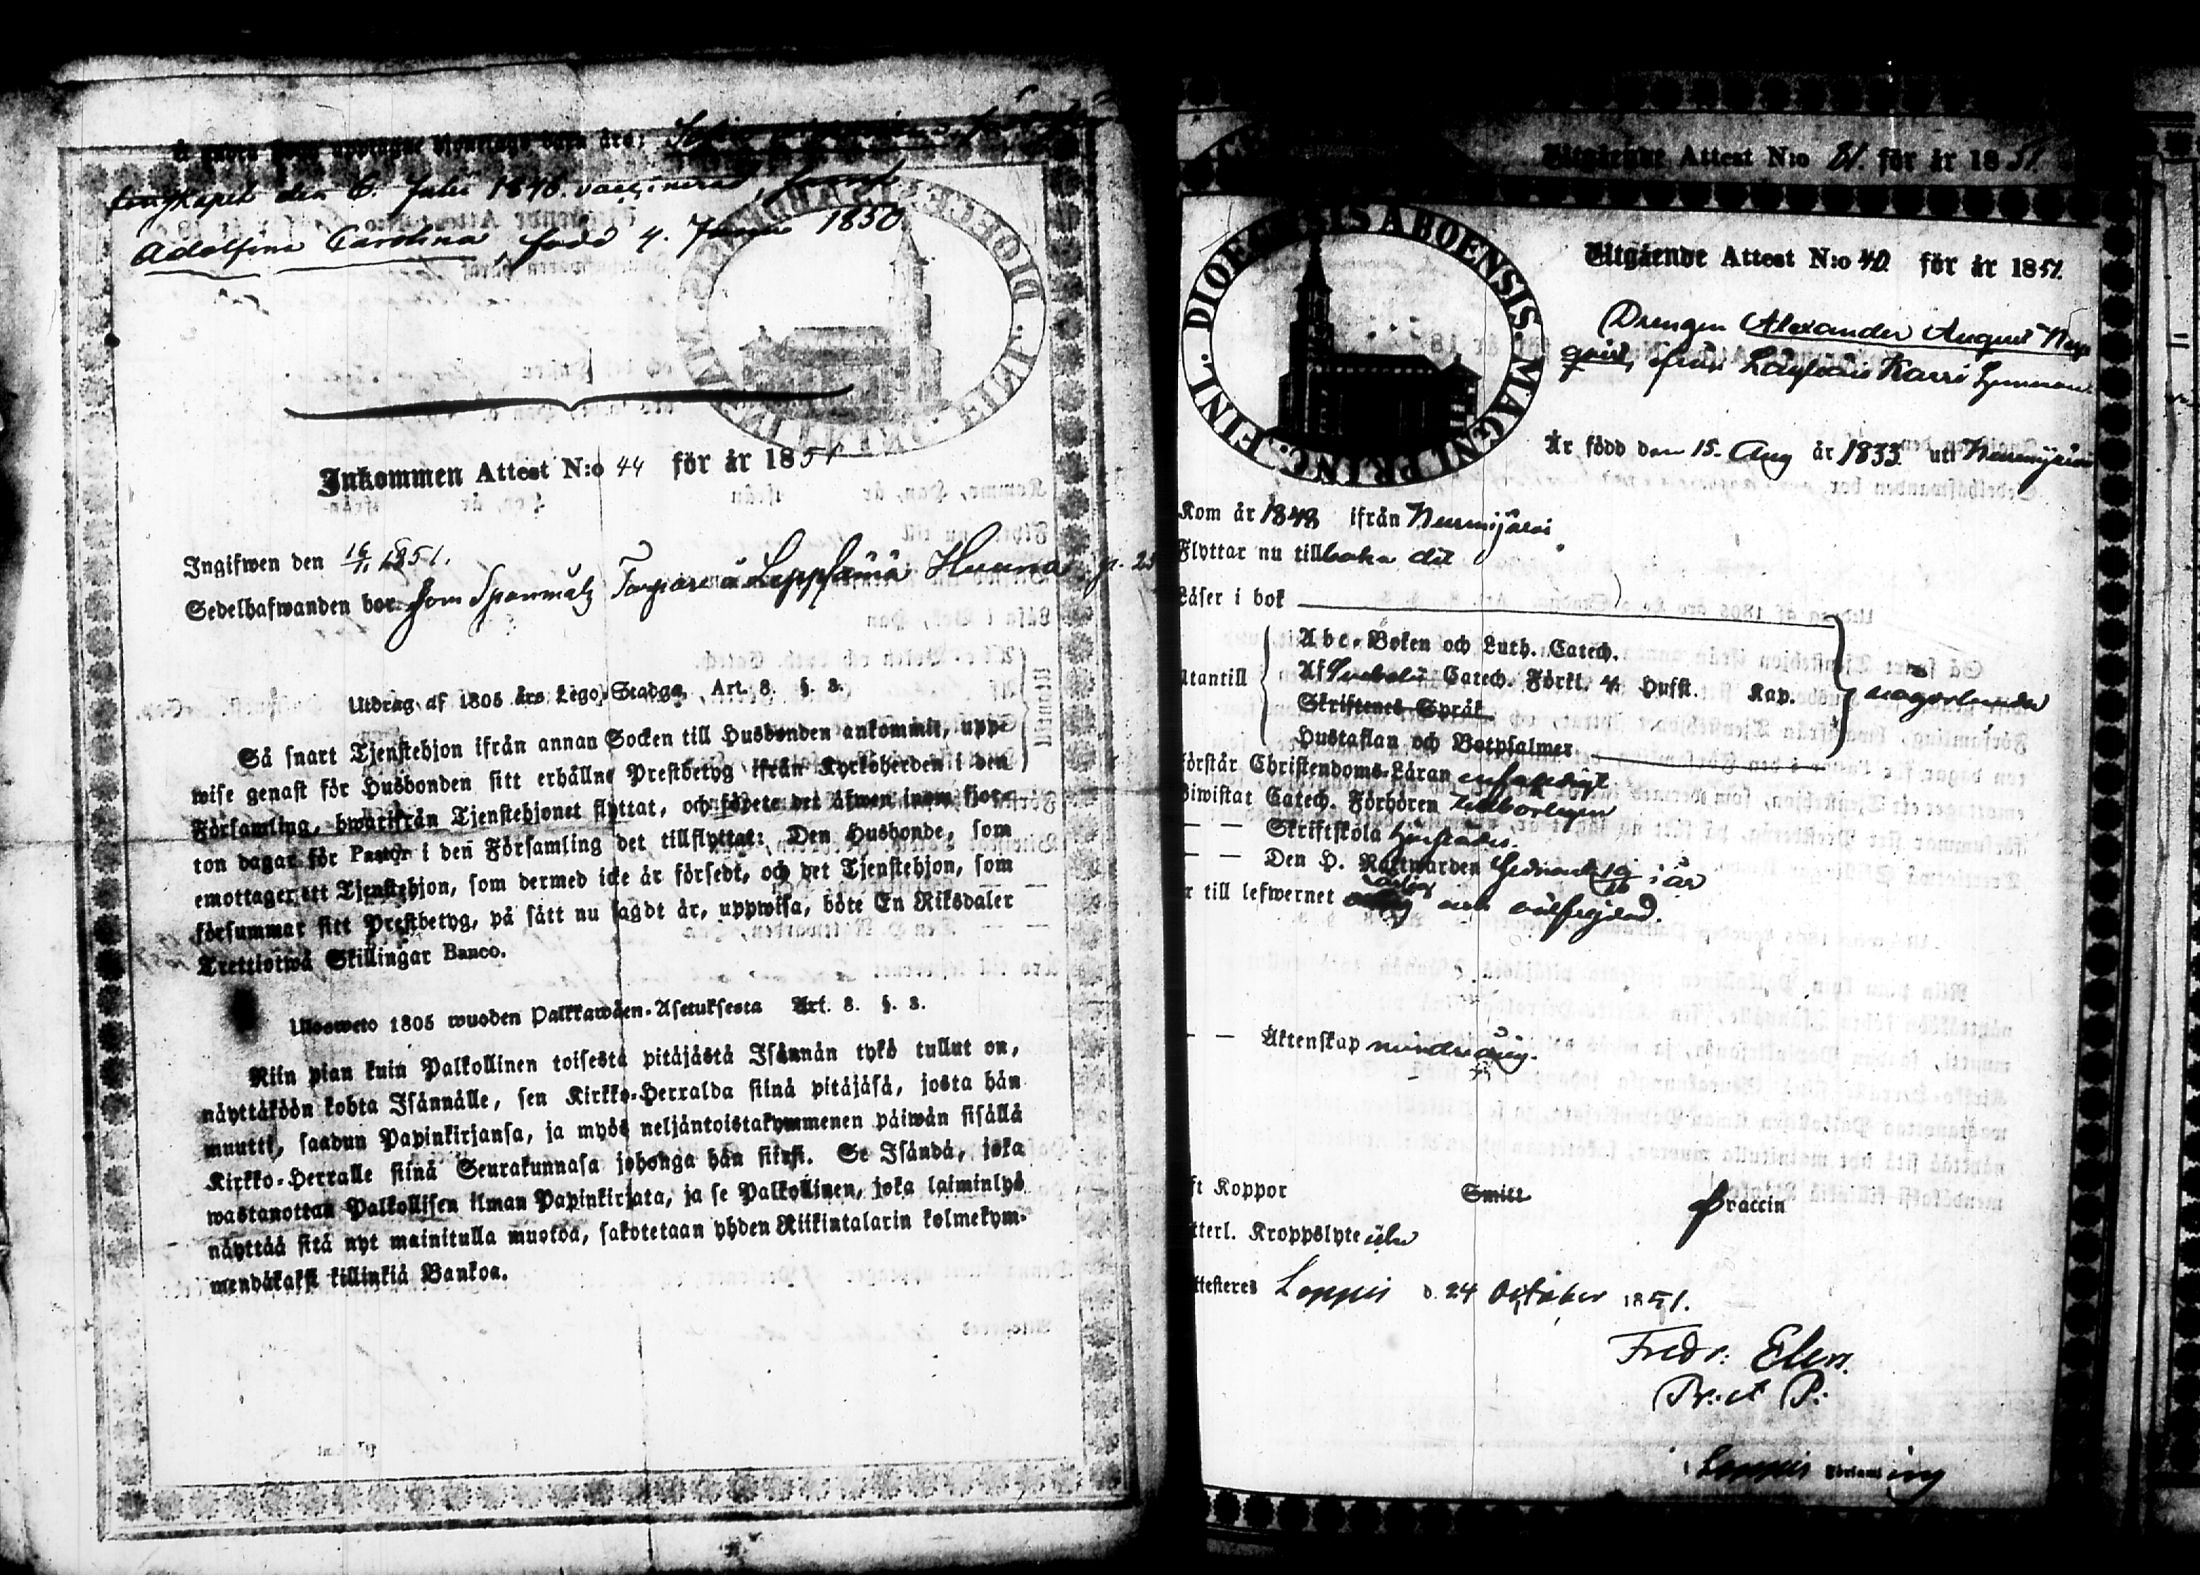 den 6. Julii 1848. vaccinerad,
Adolfina Carolina, född 4. Junii 1850
Inkommen Attest N:o 44 för år 1851
Ingifwen den 16/1 1851.
Sedelhafwanden bor som Spanmåls Torpare å Leppäänä Hunna p. 25
Utdrag af 1805 års Lego-Stadga, Art. 8. §. 3.
Så snart Tjenstehjon ifrån annan Socken till Husbonden ankommit, upp-
wise genast för Husbonden sitt erhållne Prestbetyg ifrån Kyrkoherden i den
Församling, hwarifrån Tjenstehjonet flyttat, och förete det äfwen inom fjor-
ton dagar för Pastor i den Församling det tillflyttat: Den Husbonde, som
emottager ett Tjenstehjon, som dermed icke är försedt, och det Tjenstehjon, som
försummar sitt Prestbetyg, på sätt nu sagdt är, uppwisa, böte En Riksdaler
Trettiotwå Skillingar Banco.
Ulosweto 1805 wuoden Palkkawäen-Asetuksesta Art. 8. §. 3.
Niin pian kuin Palkollinen toisesta pitäjästä Isännän tykö tullut on,
näyttäköön kohta Isännälle, sen Kirkko-Herralda siinä pitäjäsä, josta hän
muutti, saadun Papinkirjansa, ja myös neljäntoistakymmenen päiwän sisällä
Kirkko-Herralle siinä Seurakunnasa johonga hän siirsi. Se Isändä, joka
wastanottaa Palkollisen ilman Papinkirjata, ja se Palkollinen, joka laiminlyö
näyttää sitä nyt mainitulla muotoa, sakotetaan yhden Riikintalarin kolmekym-
mendäkaksi killinkiä Bankoa.
Utgående Attest N:o 81. för år 1851.
DIOECESIS ABOENSIS. MAGNI PRINC. FINL.
Utgående Attest N:o 40 för år 1851.
Drengen Alexander August
qvist, ifrån Läyliäis Karri
Är född den 15. Aug år 1833. uti Nurmijärvi
Kom år 1848 ifrån Nurmijärvi
Flyttar nu tillbaka dit
Läser i bok
Utantill
Abc-Boken och Luth. Catech.
Af Svebelii Catech. Förkl. 4 Hufst. Kap.
Skriftenes Språk
Hustaflan och Botpsalmer
någorlunda
Förstår Christendoms-Läran enfaldigt
Biwistat Catech. Förhören vederbörligen
— — Skriftskola
— — Den H. Nattwarden sednast i år
r till lefwernet ärlig och välfrejdad.
— — Äktenskap minderårig.
ft Koppor Smitt Vaccin
tterl. Kroppslyte utan
ttesteres Loppis d. 24 October 1851.
Fredr. Elers.
i Loppis Församling